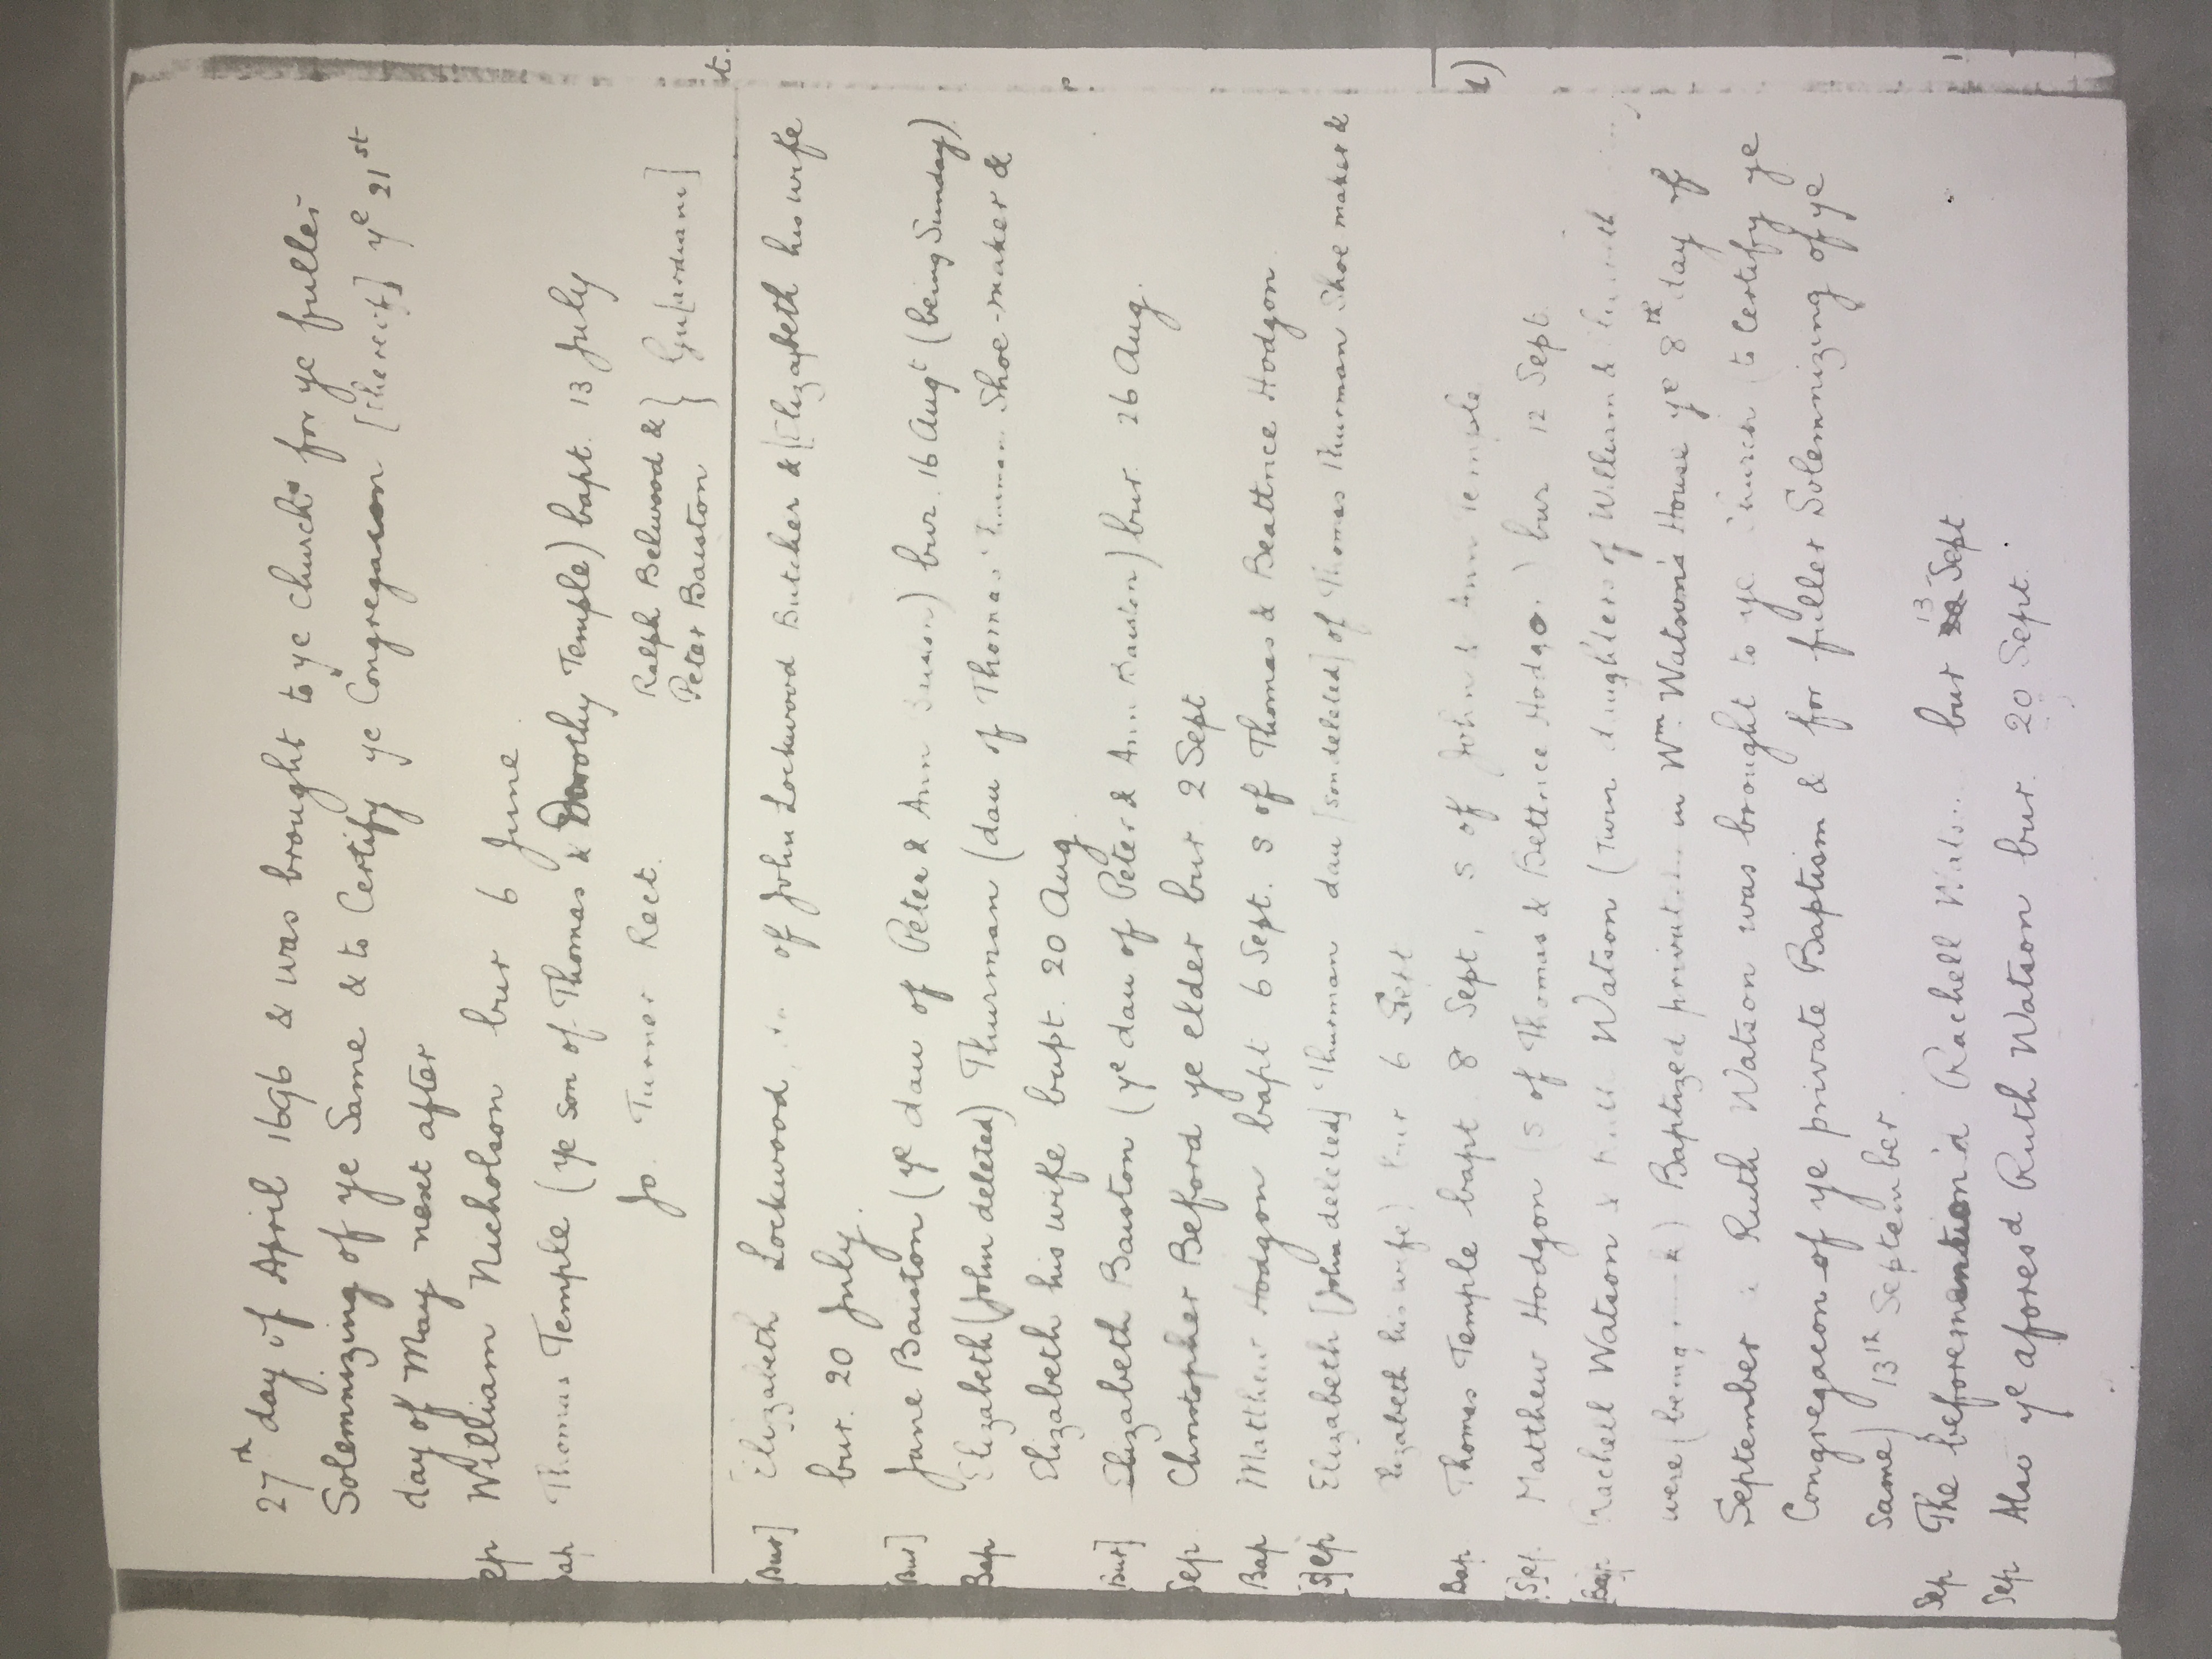 27th day of April 1696 & was brought to ye church for ye fuller
Solemnizing of ye Same & to Certify ye Congregacon [thereof] ye 21st
day of May next after
Sep William Nicholson bur 6 June
Bap Thomas Temple (ye son of Thomas & Dorothy Temple) bapt. 13 July
Jo. Turner Rect. Ralph Belwood & } Gu[ardians]
Peter Bauston
t.
[Bur] Elizabeth Lockwood of John Lockwood Butcher & [Elizabeth his wife
bur. 20 July.
[Bur] Jane Bauston (ye dau of Peter & Ann) bur. 16 Augt (being Sunday)
Bap Elizabeth (John deleted) Thurman (dau of Thomas Thurman Shoe-maker &
Elizabeth his wife bapt. 20 Aug
[Bur] Elizabeth Bauston (ye dau of Peter & Ann Bauston) bur. 26 Aug.
Sep. Christopher Beford ye elder bur. 2 Sept
Bap Matthew Hodgon bapt 6 Sept. s of Thomas & Beattrice Hodgon
[S]ep Elizabeth [John deleted] Thurman dau [son deleted] of Thomas Thurman Shoe maker &
Elizabeth his wife) bur 6 Sept
Bap. Thomas Temple bapt. 8 Sept, s of John & Ann Temple
[S]ep. Matthew Hodgon (s of Thomas & Bettrice Hodgo.) bur 12 Sept.
Bap. Rachell Watson & Ruth Watson (Twin daughters of William &
were (being) Baptized private in Wm. Watson's House ye 8th day of
September & Ruth Watson was brought to ye Church (to Certify ye
Congregacon of ye private Baptism & for fuller Solemnizing of ye
Same) 13th September.
Sep The beforemention'd Rachell Wats.. bur 13 Sept
Sep Also ye aforesd Ruth Watson bur. 20 Sept.